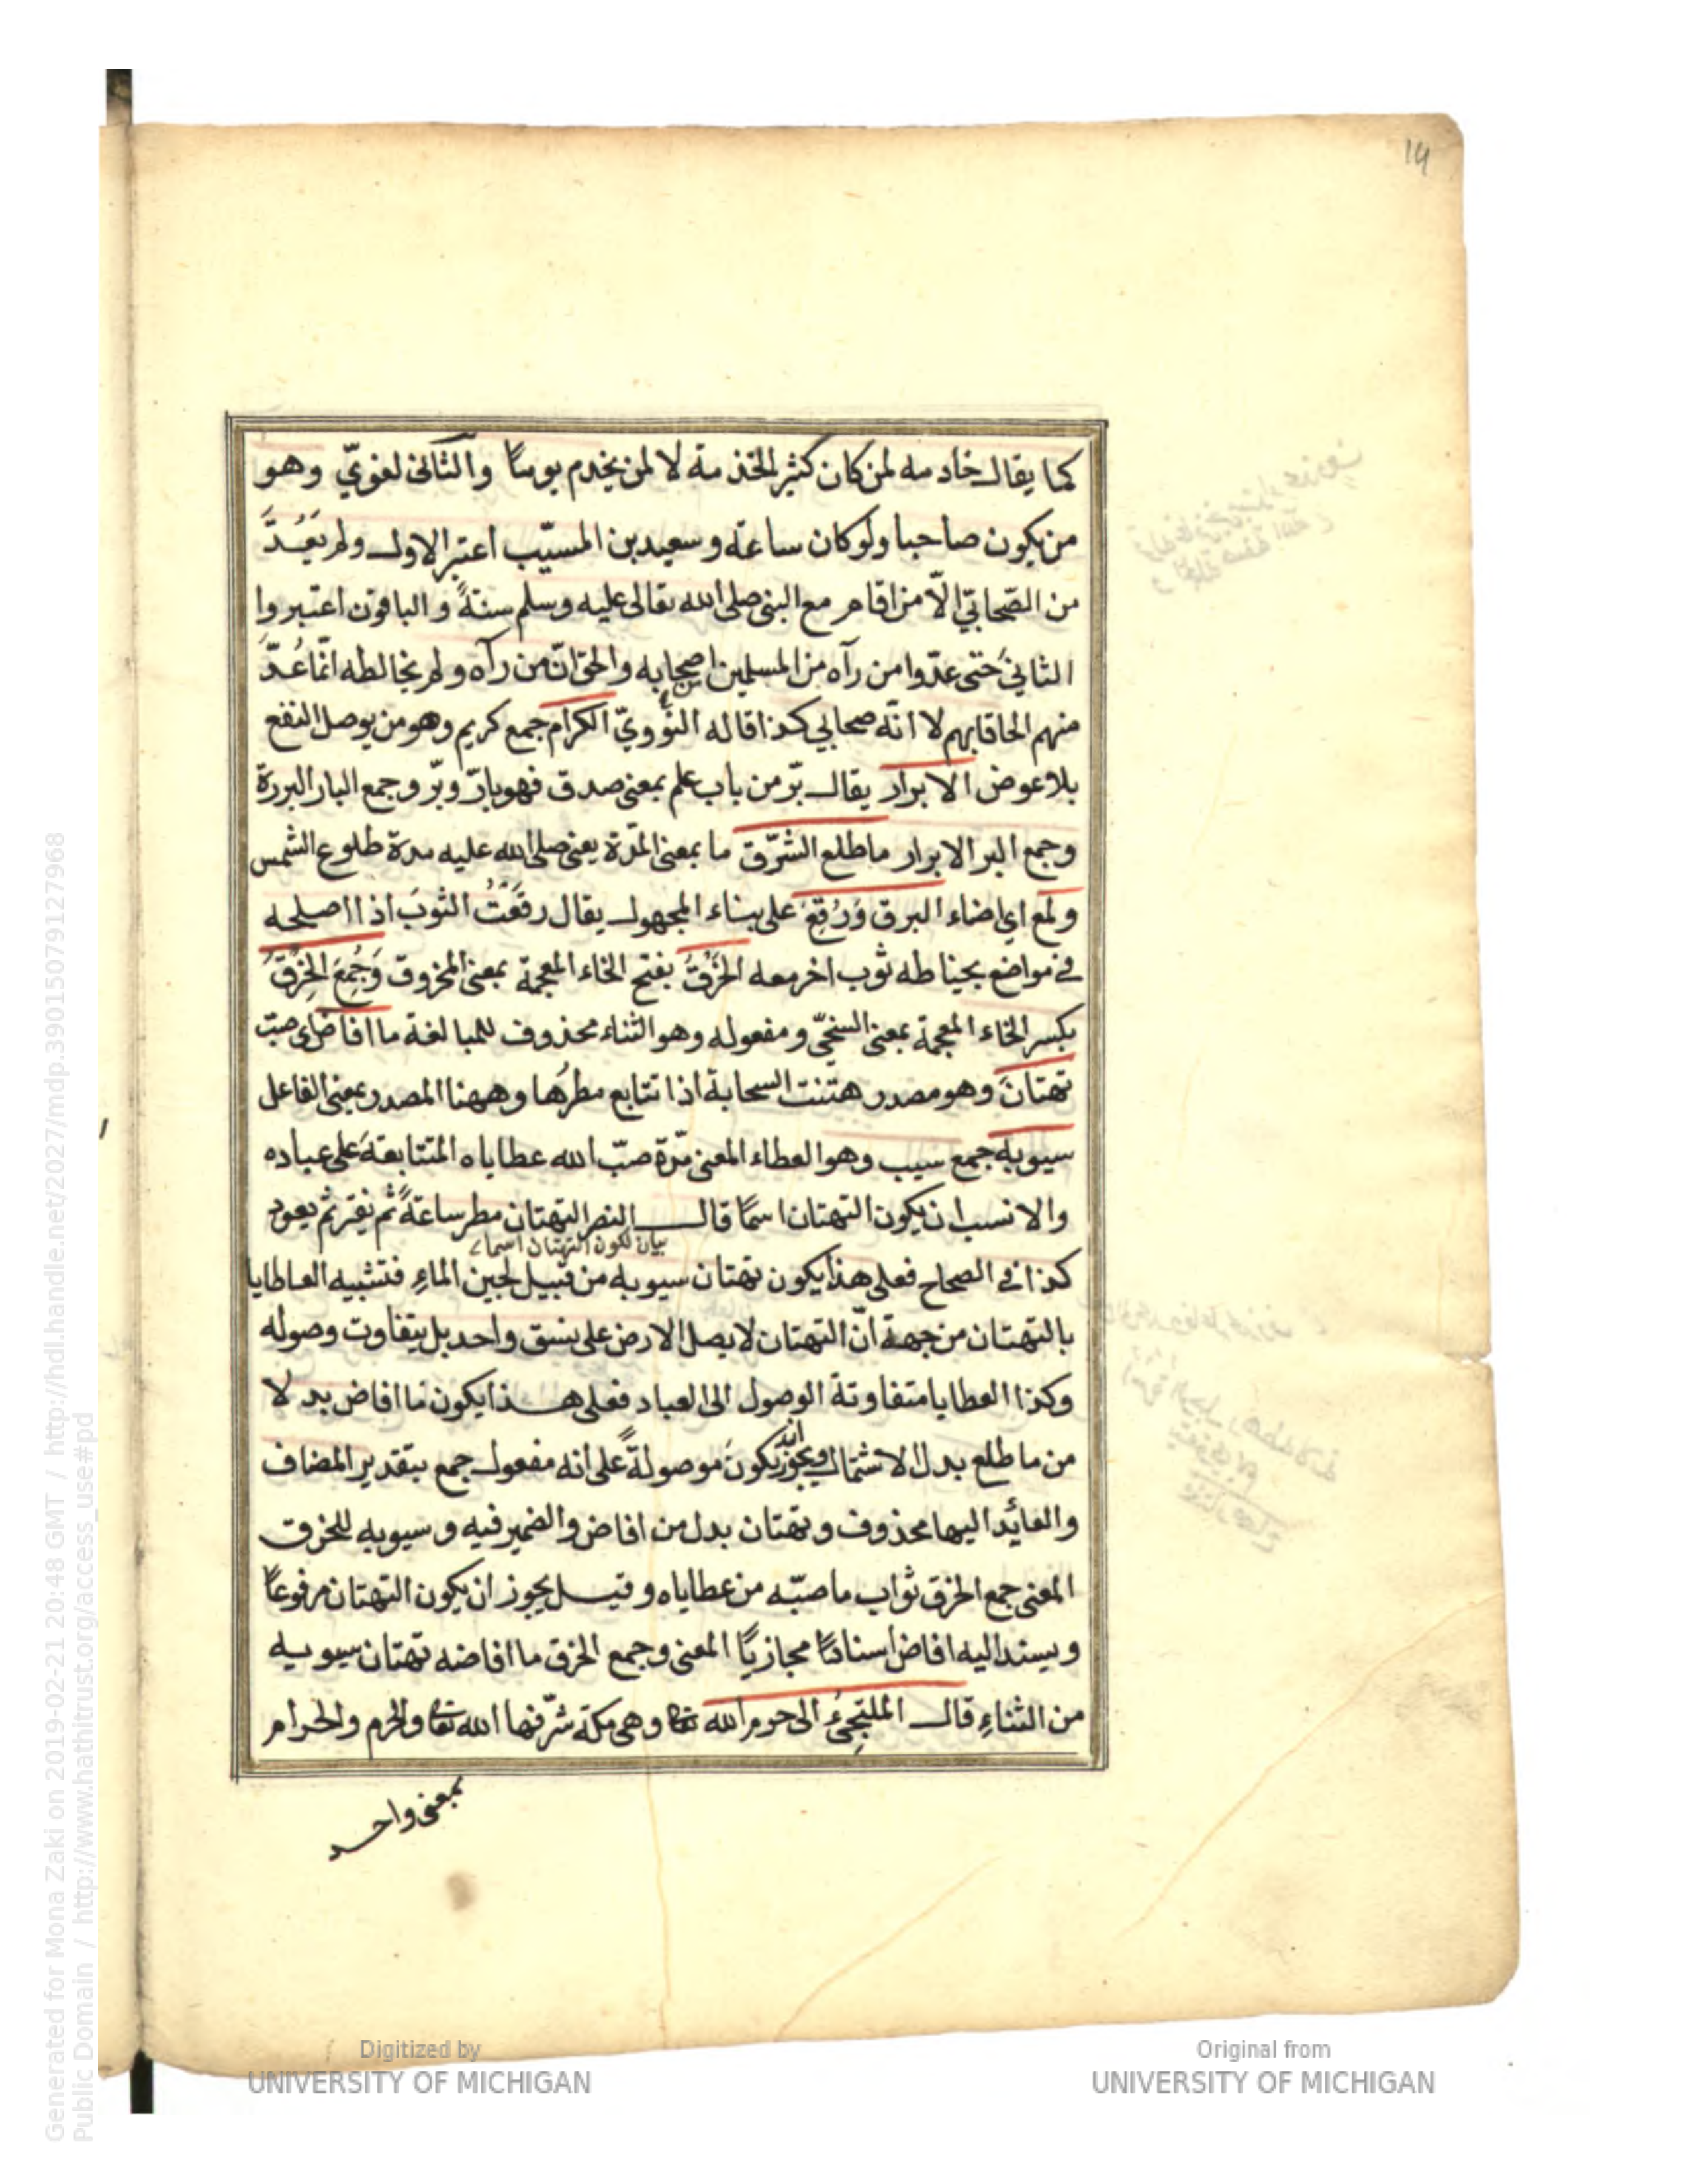 14
كما يقال خادمه لمن كان كثير الخدمة لا لمن يخدم يوما والثاني لغويّ وهو
من يكون صاحبا ولو كان ساعة وسعيد بن المسيّب اعتبر الاول ولم يَعُدَّ
من الصّحابيّ الّا من اقام مع النبى صلى الله تعالى عليه وسلم سنةً والباقون اعتبروا
الثانيَ حتى عدّوا من رآه من المسلمين اصحابه والحق انّ من رآه ولم يخالطه انّما عُدّ
منهم الحاقا بهم لا انّه صحابي كذا قاله النووويّ الكرام جمع كريم وهو من يوصل النفع
بلا عوض الابرار يقال برّ من باب علم بمعنى صدق فهو بارّ وبرّ وجمع البار البررة
وجمع البر الابرار ما طلع الشرّق ما بمعنى المدّة يعنى صلى الله عليه مدة طلوع الشمس
ولمع اي اضاء البرق وَرُقِعَ على بناء المجهول يقال رقَعْتُ الثوبَ اذا اصلحه
في مواضع بخياطه ثوب اخر معه الخَرْقُ بفتح الخاء المعجمة بمعنى المخروق وَجُمِعَ الخِرْقُ
بكسر الخاء المعجمة بمعنى السخيّ ومفعوله وهو الثناء محذوف للمبالغة ما افاض اى صبّ
تهتانَ وهو مصدر هتنت السحابة اذا تتابع مطرُها وههنا المصدر بمعنى الفاعل
سيوبِه جمع سيب وهو العطاء المعنى مدّة صبّ الله عطاياه المتتابعةَ على عباده
والانسب ان يكون التهتان اسمًا قال النضر التهتان مطر ساعةً ثم يفتر ثم يعود
بيان لكون التهتان اسما
كذا في الصحاح فعلى هذا يكون تهتان سيوبه من قبيل لجين الماءِ فتشبيه العطايا
بالتهتان من جهة انّ التهتان لا يصل الارض على نسق واحد بل يتفاوت وصوله
وكذا العطايا متفاوتة الوصول الى العباد فعلى هذا يكون ما افاض بدلا
من ما طلع بدل الاشتمال ويجوز ان يكونَ موصولةً على انه مفعول جمع بتقدير المضاف
والعائد اليها محذوف وتهتان بدل من افاض والضمير فيه وسيوبه للخرق
المعنى جمع الخرق ثواب ما صبّه من عطاياه وقيل يجوز ان يكون التهتان مرفوعًا
ويسند اليه افاض اسنادًا مجازيًا المعنى وجمع الخرق ما افاضه تهتان سيوبه
من الثناءِ قال الملتجِئُ الى حرم الله تعا وهى مكة شرّفها الله تعا والحرم والحرام
بمعنى واحد
Digitized by
UNIVERSITY OF MICHIGAN
Original from
UNIVERSITY OF MICHIGAN
Generated for Mona Zaki on 2019-02-21 20:48 GMT / http://hdl.handle.net/2027/mdp.39015079127968
Public Domain / http://www.hathitrust.org/access_use#pd